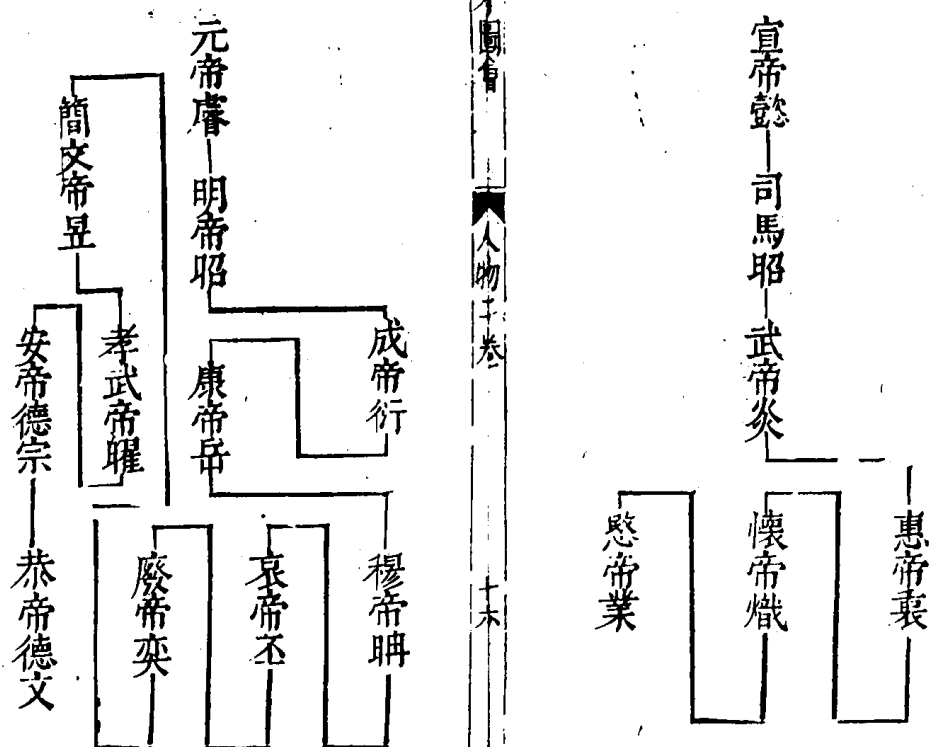 宣帝懿
司馬昭
武帝炎
惠帝衷
懷帝熾
愍帝業
圖會
人物二卷
十六
元帝睿
明帝昭
成帝衍
康帝岳
穆帝聃
哀帝丕
廢帝奕
簡文帝昱
孝武帝曜
安帝德宗
恭帝德文